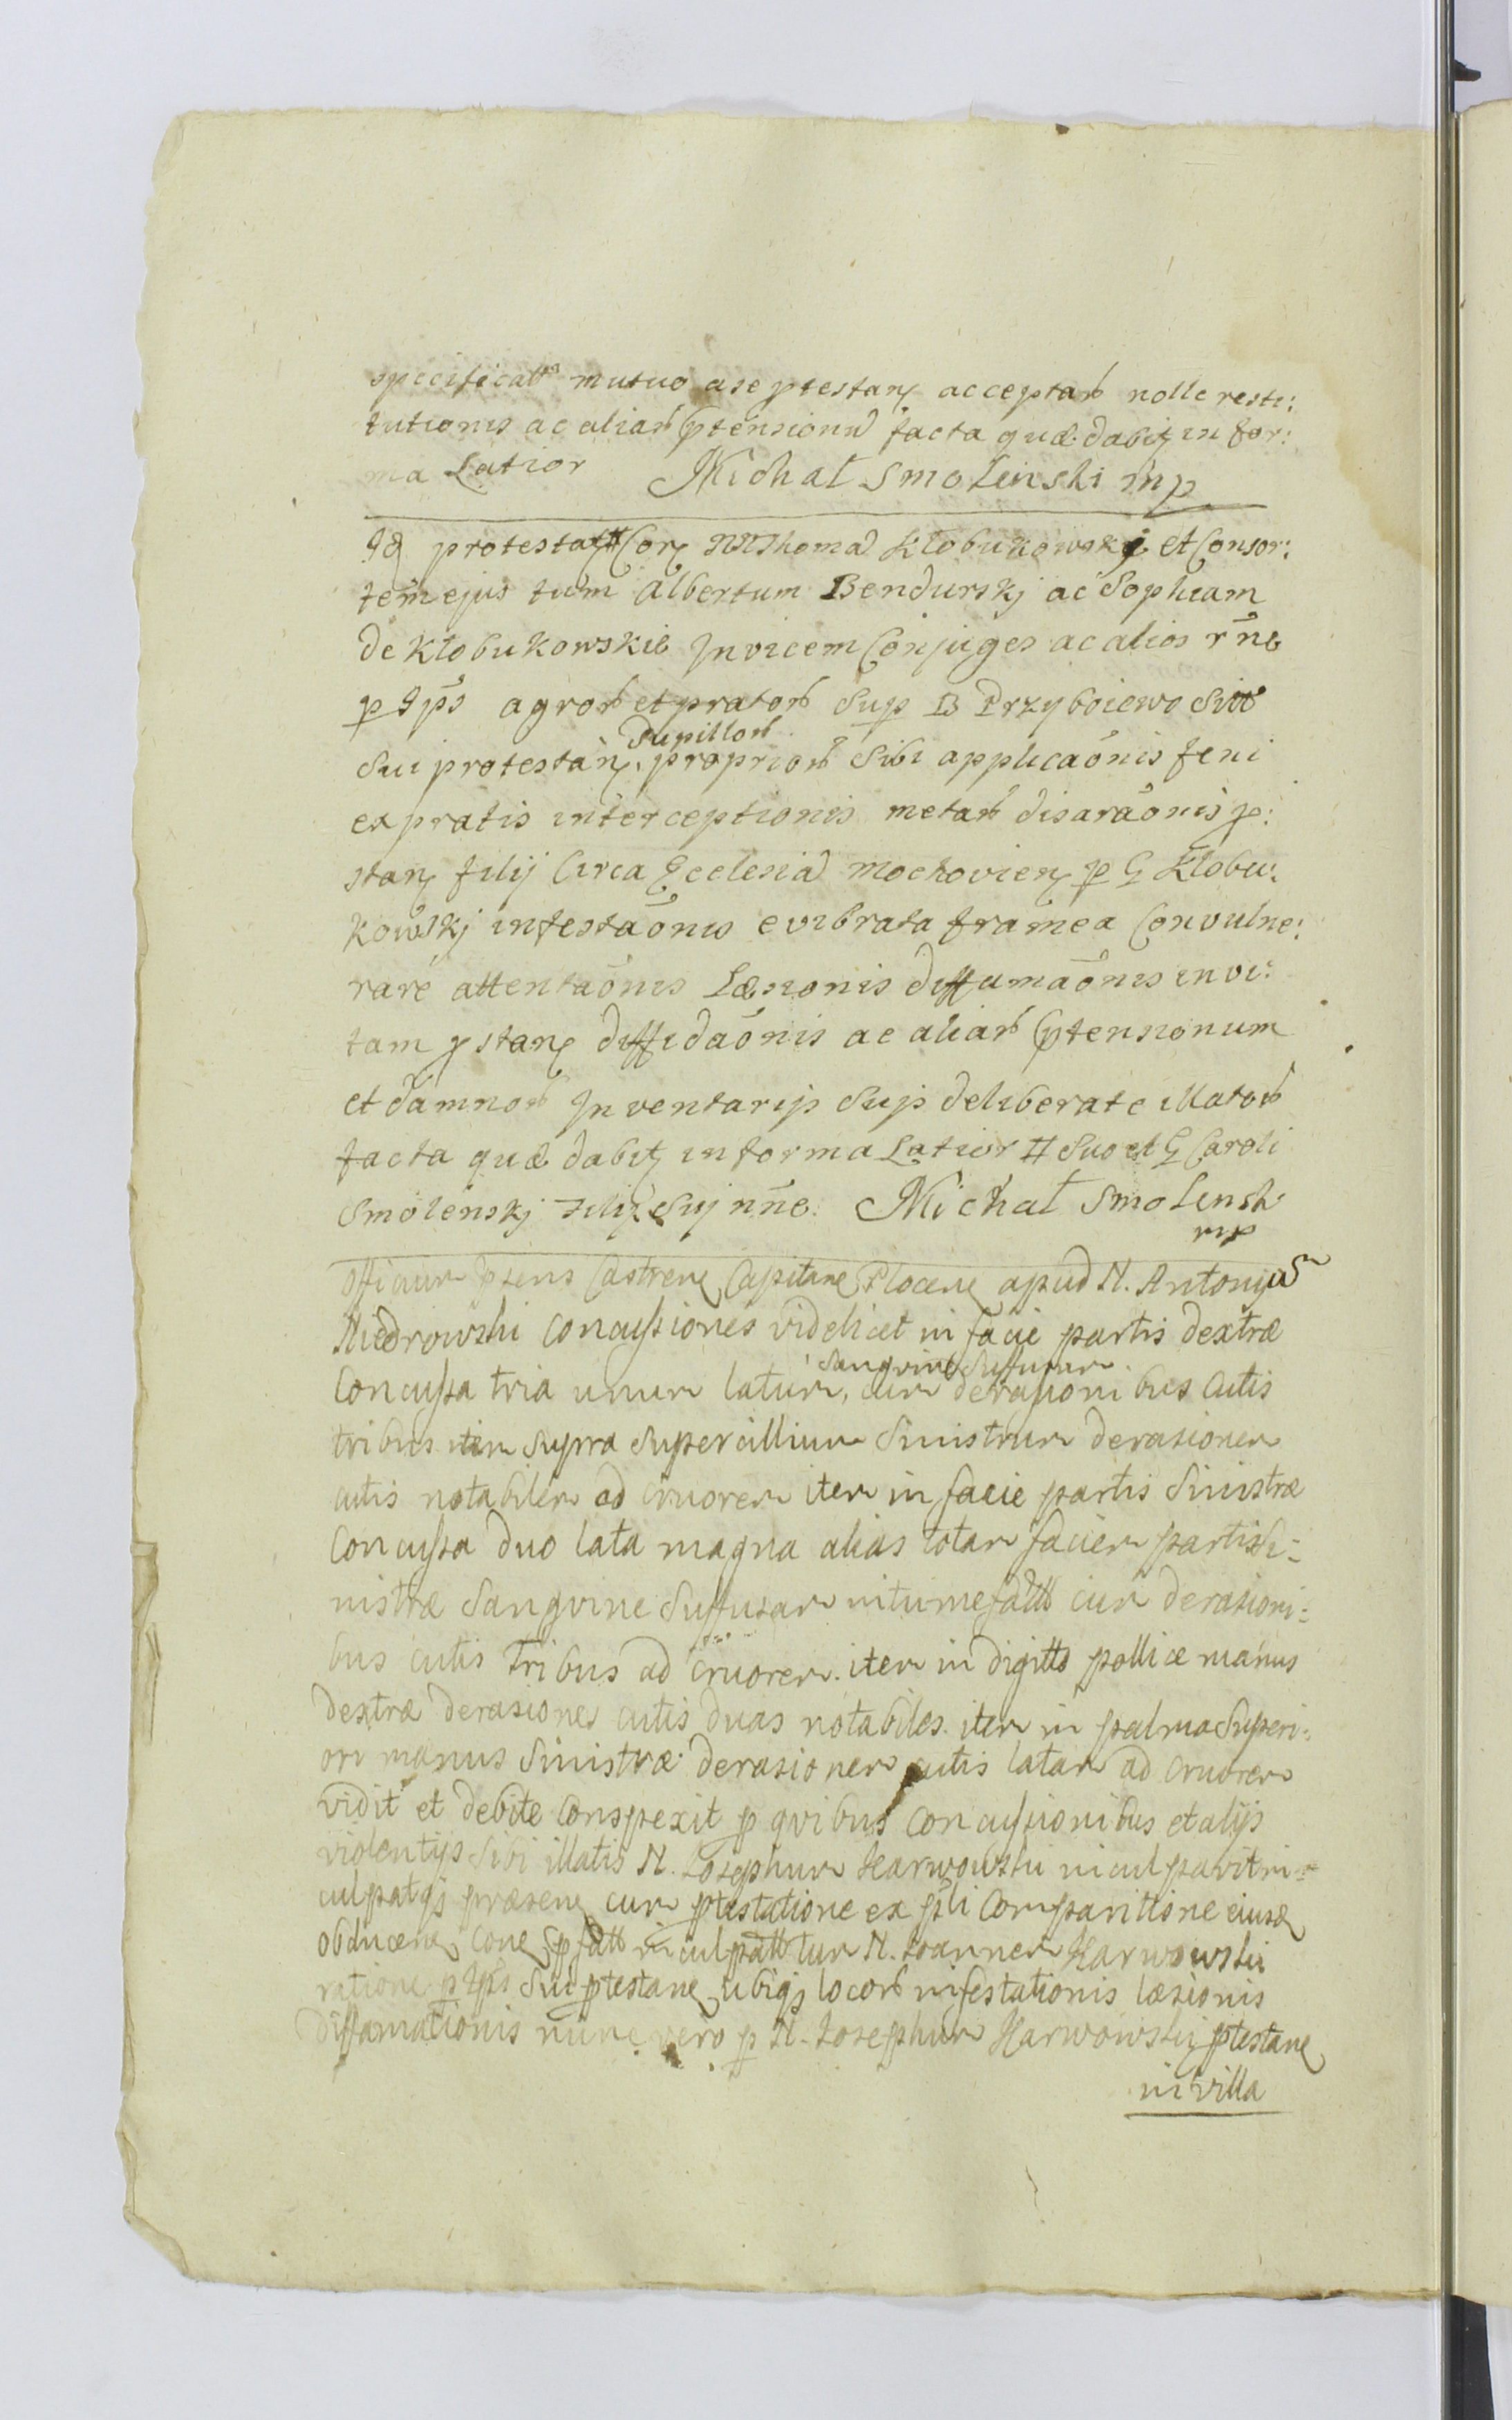 specificat mutuo a se ptestan acceptar nolle resti:
tutionis ac aliar ptensionu facta quæ dabit in for:
ma Latior Michał Smolenski mp
Id protestat Cor NN Thoma Kłobukowskj et Consor:
tem ejus tum Albertum Bendurskj ac Sophiam
de Kłobukowskie Invicem Conjuges ac alios rne
p Ips agror et prator Sup B Przyboiewo Sitt
Pupillor
Sui protestan, proprior Sibi applicaonis feni
ex pratis interceptionis metar disaraonis p:
stan filij Circa Ecclesia mochovien p G Kłobu:
kowskj infestaonis evibrata framea Convulne:
rare attentaonis Læsionis diffamaonis in vi:
tam pstan diffidaonis ac aliar ptensionum
et damnor Inventarij Sup deliberate illator
facta quæ dabit in forma Latior # Suo et G Caroli
Smolenskj Filij Suj nne. Michał Smolensk
mp
Officium psens Castren Capitane Plocen apud N. Antonium
Niedrowski concussiones videlicet in facie partis dextræ
Sangvine Suffusum
Concussa tria unum latum, cum derasionibus cutis
tribus item Supra Supercillium Sinistrum derasionem
cutis notabilem ad cruorem item in facie partis Sinistræ
Concussa duo lata magna alias totam faciem partis Si-
nistræ Sangvine Suffusam intumefatt cum derasioni-
bus cutis tribus ad cruorem. item in digitto pollice manus
dextræ derasiones cutis duas notabiles. item in palma Superi-
ori manus Sinistræ derasionem cutis latam ad cruorem
vidit et debite conspexit p qvibus concussionibus et alijs
violentijs Sibi illatis N. Josephum Karwowski inculpavit in-
culpatqs præsen cum ptestatione ex pli Comparitione eiusd
obducen, Con pfatt inculpatt tum N. Joannem Karwowski
ratione p Ips Sui ptestane ubiqs locor infestationis læsionis
diffamationis nunc vero p N. Josephum Karwowski ptestane
in villa